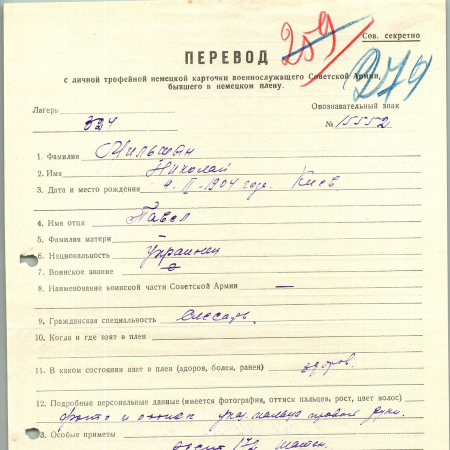 259
Сов. секретно
279
ПЕРЕВОД
с личной трофейной немецкой карточки военнослужащего Советской Армии,
бывшего в немецком плену.
Лагерь
Опознавательный знак
324
№ 15552
1. Фамилия Мильман
2. Имя Николай
3. Дата и место рождения 4. II - 1904 года. Киев.
4. Имя отца Павел
5. Фамилия матери
6. Национальность Украинец
7. Воинское звание
8. Наименование воинской части Советской Армии —
9. Гражданская специальность слесарь.
10. Когда и где взят в плен
11. В каком состоянии взят в плен (здоров, болен, ранен) здоров.
12. Подробные персональные данные (имеется фотография, оттиск пальцев, рост, цвет волос)
фото и оттиск указ. пальца правой руки.
3. Особые приметы